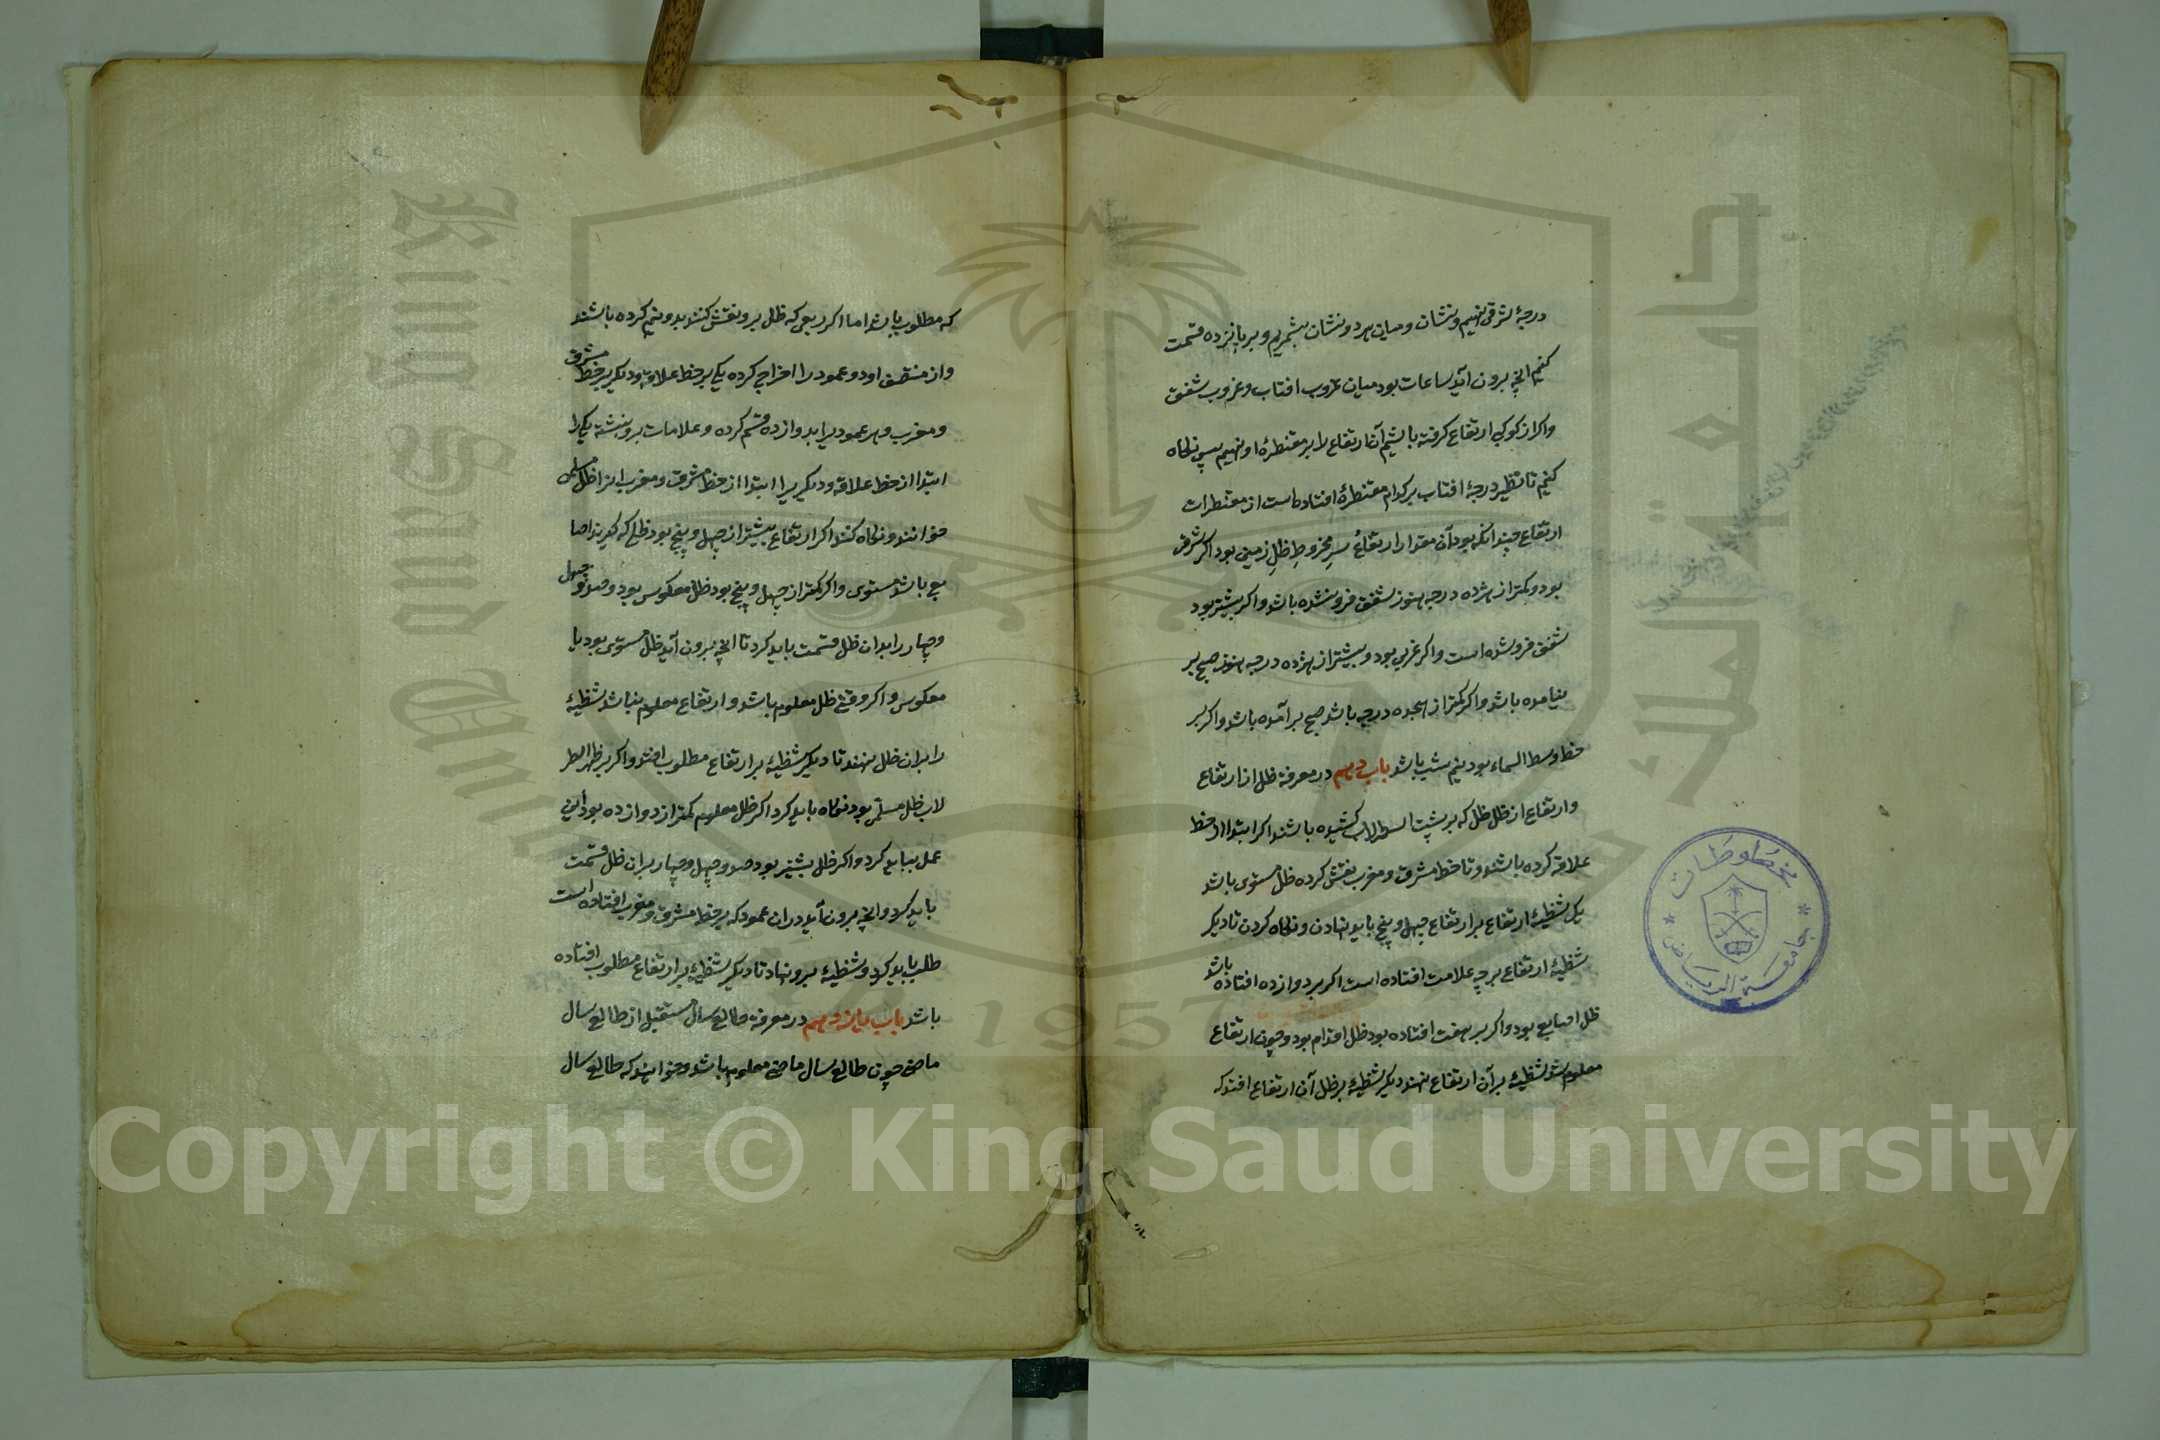 درجهٔ شرقی نهیم و نشان و میان هر دو نشان بشمریم و بر پانزده قسمت
کنیم انچه برون آید ساعات بود میان غروب افتاب و غروب شفق
واکر از کوکبی ارتفاع کرفته باشیم آن ارتفاع را بر مقنطرهٔ او نهیم پس نکاه
کنیم تا نظیر درجهٔ افتاب بر کدام مقنطرهٔ افتاده است از مقنطرات
ارتفاع چندانکه بود آن مقدار ارتفاع سر مخروط ظل زمین بود اکر شرقی
بود و کمتر از هژده درجه هنوز شفق فرو نشده باشد واکر بیشتر بود
شفق فرو شده است واکر غربی بود و بیشتر از هژده درجه هنوز صبح بر
نیامده باشد واکر کمتر از هجده درجه باشد صبح برآمده باشد واکر بر
خط وسط السماء بود نیم شب باشد باب دهم در معرفة ظل از ارتفاع
و ارتفاع از ظل ظل که بر پشت اسطرلاب کشیده باشند اکر ابتدا از خط
علاقه کرده باشند و تا خط مشرق و مغرب نقش کرده ظل مستوی باشد
یک شظیهٔ ارتفاع بر ارتفاع چهل و پنج باید نهادن و نکاه کردن تا دیکر
شظیهٔ ارتفاع بر چه علامت افتاده است اکر بر دوازده افتاده باشد
ظل اصابع بود واکر بر هفت افتاده بود ظل اقدام بود و چون ارتفاع
معلوم شد شظیهٔ بر آن ارتفاع نهند دیکر شظیهٔ بر ظل آن ارتفاع افتد که
که مطلوب باشد اما اکر ربعی که ظل برو نقش کنند بدو نیم کرده باشند
واز منتصف او دو عمود را اخراج کرده یکی بر خط علاقه و دیکر بر خط مشرق
و مغرب و هر عمود یرا بدوازده قسم کرده و علامات برو بنبشته یکی را
ابتدا از خط علاقه و دیکریرا ابتدا از خط مشرق و مغرب انرا ظل سلمی
خوانند و نکاه کنند اکر ارتفاع بیشتر از چهل و پنج بود ظلی که کیرند اصا
بع باشد مستوی واکر کمتر از چهل و پنج بود ظل معکوس بود و صد و چهل
و چهار را بدان ظل قسمت باید کرد تا انچه برون آید ظل مستوی بود یا
معکوس و اکر وقتی ظل معلوم باشد و ارتفاع معلوم نباشد شظیهٔ
را بران ظل نهند تا دیکر شظیهٔ بر ارتفاع مطلوب افتد واکر بر ظهر اسطر
لاب ظل سلمی بود نکاه باید کرد اکر ظل معلوم کمتر از دوازده بود این
عمل بباید کرد واکر ظل بیشتر بود صد و چهل و چهار بران ظل قسمت
باید کرد و انچه برون آید دران عمود که بر خط مشرق و مغرب افتاده است
طلب باید کرد و شظیهٔ برو نهاد تا دیکر شظیهٔ بر ارتفاع مطلوب افتاده
باشد باب یازدهم در معرفة طالع سال مستقبل از طالع سال
ماضی چون طالع سال ماضی معلوم باشد و خواهند که طالع سال
مخطوطات
جامعة الرياض
جامعة الملك
King Saud Uni
1957
Copyright © King Saud University